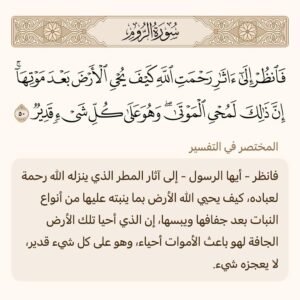 سُورَةُ الرُّومِ
فَٱنظُرۡ إِلَىٰٓ ءَاثَٰرِ رَحۡمَتِ ٱللَّهِ كَيۡفَ يُحۡيِ ٱلۡأَرۡضَ بَعۡدَ مَوۡتِهَآۚ
إِنَّ ذَٰلِكَ لَمُحۡيِ ٱلۡمَوۡتَىٰۖ وَهُوَ عَلَىٰ كُلِّ شَيۡءٖ قَدِيرٞ ٥٠
المختصر في التفسير
فانظر - أيها الرسول - إلى آثار المطر الذي ينزله الله رحمة
لعباده، كيف يحيي الله الأرض بما ينبته عليها من أنواع
النبات بعد جفافها ويبسها، إن الذي أحيا تلك الأرض
الجافة لهو باعث الأموات أحياء، وهو على كل شيء قدير،
لا يعجزه شيء.